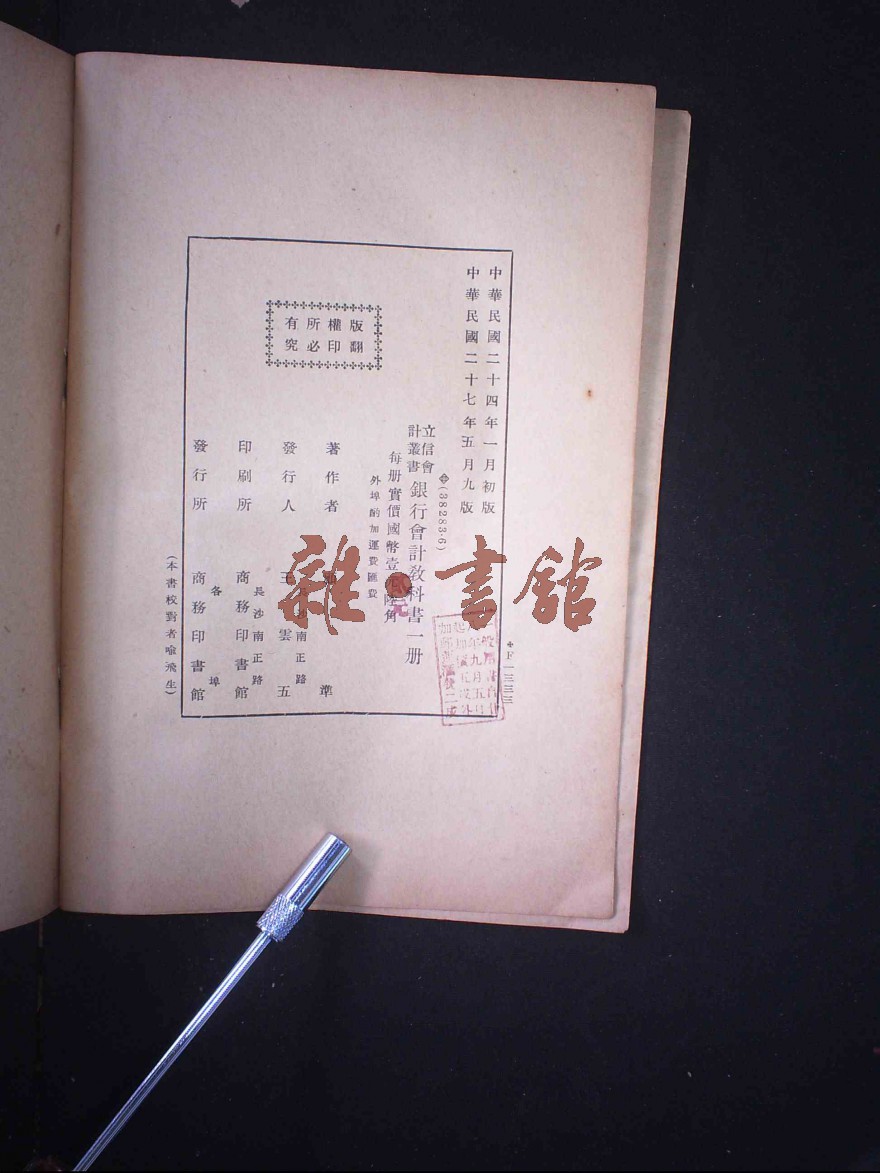 中華民國二十四年一月初版
中華民國二十七年五月九版
(38283·6)
立信會
計叢書
銀行會計教科書一册
每册實價國幣壹元陸角
外埠酌加運費匯費
版權所有
翻印必究
著作者
準
發行人
王雲五
長沙南正路
印刷所
商務印書館
長沙南正路
發行所
商務印書館
各埠
(本書校對者喻飛生)
F一三三三
雜·書館